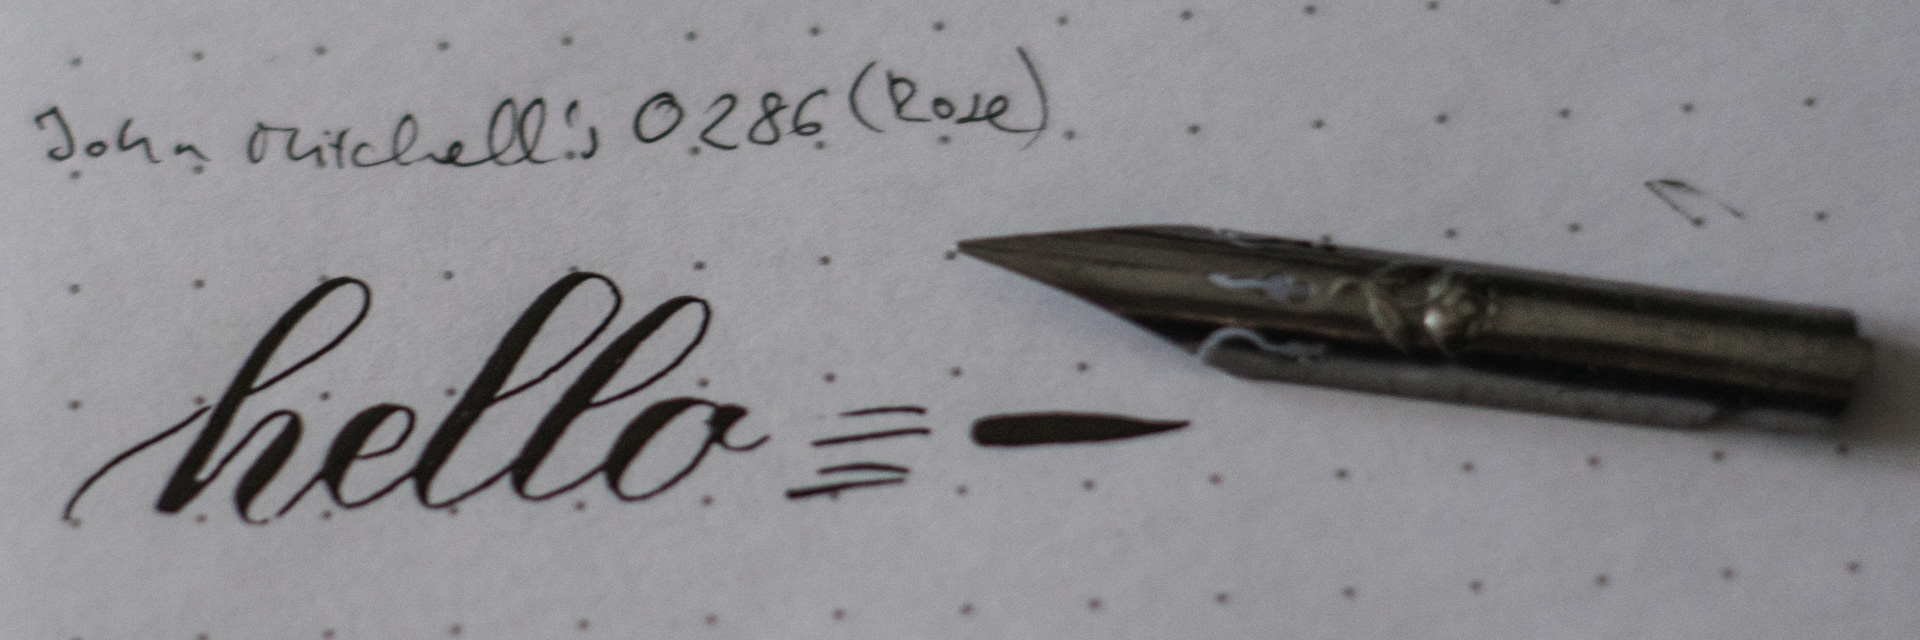 John Mitchell's 0286 (Rose)
hello